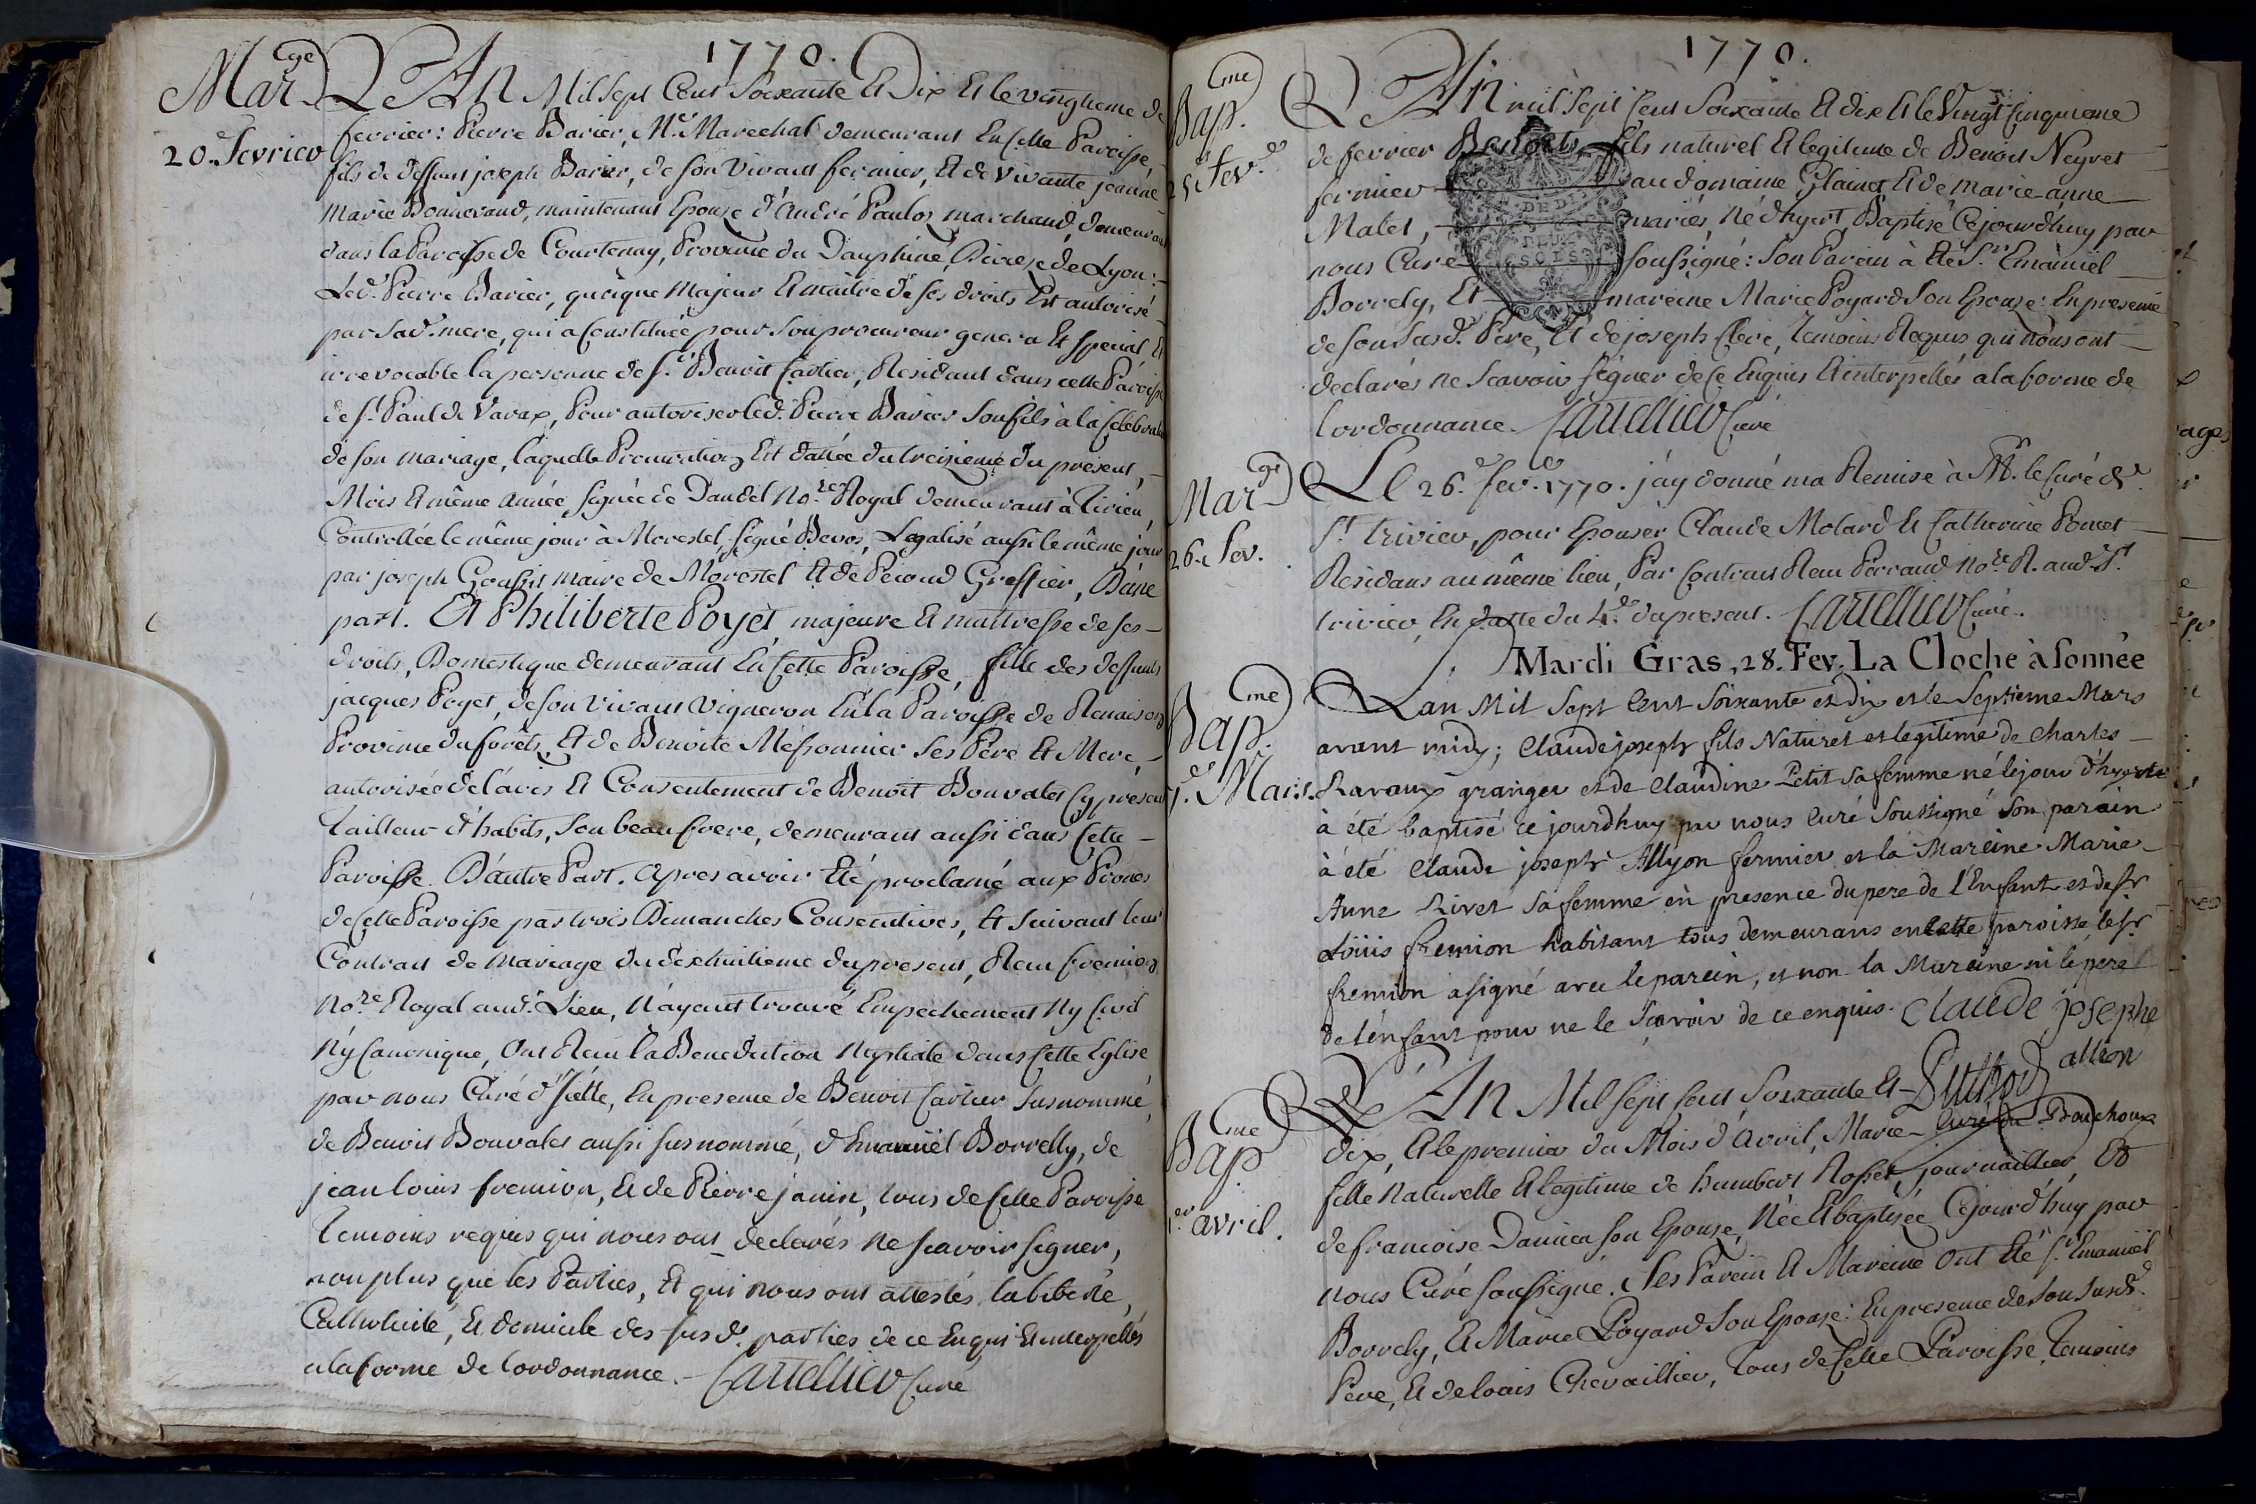 1770.
Mar.ge L'An Mil Sept Cent Soixante Et Dix Et le vingtieme de
20.e Fevrier fevrier: Pierre Barier, M.e Marechal demeurant En Cette Paroisse
fils de deffunt joseph Barier, de son vivant fermier, Et de vivante jeanne
Marie Bonnerand, maintenant Epouse d'andré Pauloz marchand, demeurant
dans la Paroisse de Courtenay, Province du Dauphiné, Diocese de Lyon:
Led.t Pierre Barier, quoique Majeur Et maître de ses droits Est autorisé
par sad.e mere, qui a Constituée pour son procureur general Et special, Et
irrevocable la personne de s.r Benoit Cartier, Residant dans cette Paroisse
de s.t Paul de Varax, Pour autoriser led. Pierre Barier son fils à la
de son mariage, laquelle Procuration Est dattée du treizieme du présent,
Mois Et même année, signée de Daudel No.re Royal demeurant à
Controllée le même jour à Morestel, signé Bevos, Legalisé aussi le même jour
par joseph maire de Morestel Et de Greffier, D'une
part. Et Philiberte Poyet majeure Et maîtresse de ses
droits, Domestique demeurant En Cette Paroisse, fille des deffunts
jacques Poyet, de son vivant Vigneron En la Paroisse de Renaison
Province du forêts, Et de Benoite Messonnier ses Père Et Mere,
autorisée de l'avis Et Consentement de Benoît Bouvalet Cy present
Tailleur d'habits, son beau frere, demeurant aussi dans Cette
Paroisse. D'autre Part. Apres avoir Eté proclamé aux Prones
de Cette Paroisse par trois Dimanches Consecutives, Et suivant leur
Contrat de mariage du dixhuitieme du present, Reçu fremion
No.re Royal aud.t Lieu, N'ayant trouvé Empechement Ny Civil
Ny Canonique, Ont Reçu la Benediction Nuptiale dans Cette Eglise
par nous Curé d'Jcelle, En presence de Benoit Cartier susnommé,
de Benoit Bouvalet aussi susnommé, d'Emanuel Borrelly, de
jean louis fremion, Et de Pierre janin, tous de Cette Paroisse
Temoins requis qui nous ont declarés ne scavoir signer,
non plus que les Parties, Et qui nous ont attestés la liberté,
Catholicité, Et domicile des susd. parties de ce Enquis Et interpellés
a la forme de lordonnance. Cartellier Curé
1770.
Bap.me L'An mil Sept Cent Soixante Et dix Et le Vingt Cinquieme
25.e Fev. de fevrier Benoit, fils naturel Et legitime de Benoit Neyret
fermier au domaine Glainet Et de marie anne
Malet, mariés, Né d'hyer Et Baptisé Cejourdhuy par
nous Curé soussigné: Son Parein à Eté S.r Emanuel
Borrely, Et mareine Marie Poyard son Epouse: En presence
de son susd. Père, Et de joseph Clerc, Temoins Requis, qui Nous ont
declarés ne Scavoir signer de Ce Enquis Et interpellés a la forme de
lordonnance. Cartellier Curé
Mar.ge Le 26.e fev. 1770. j'ay donné ma Remise à M. le Curé de
26. Fev. S.t Trivier, pour Epouser Claude Molard Et Catherine Poncet
Residans au même lieu, Par Contrat Reçu Perraud No.re R. aud. S.t
trivier, En datte du 4.e du present. Cartellier Curé.
Mardi Gras, 28. Fev. La Cloche à sonnée
Bap.me Lan Mil Sept Cent Soixante et Dix et le Septieme Mars
7.e Mars. avant midy; Claude joseph fils Naturel et legitime de Charles
Ravaux granger et de Claudine Petit sa femme né le jour d'hyer
à été baptisé ce jourdhuy par nous Curé Soussigné Son parain
à été Claude joseph Allyon fermier et la Mareine Marie
Anne Rivet sa femme en presence du pere de l'Enfant et de sr
Loüis fremion habitant tous demeurans en cette paroisse le sr
fremion a signé avec le parein, et non la Mareine ni le pere
de l'enfant pour ne le Scavoir de ce enquis. Claude josephe
allion
Puthod
Curé du Plouchoux
Bap.me L'An Mil Sept Cent Soixante Et
1.er avril. dix, Et le premier du Mois d'Avril, Marie
fille Naturelle Et legitime de humbert Rosset, journaillier, Et
de francoise Dannier son Epouse, Née Et baptisée Cejourd'huy par
nous Curé soussigné. Ses Parein Et Mareine Ont Eté S.r Emanuel
Borrely, Et Marie Poyard Son Epouse: En presence de Son Susd.
Père, Et de louis Chevaillier, Tous de Cette Paroisse, Temoins